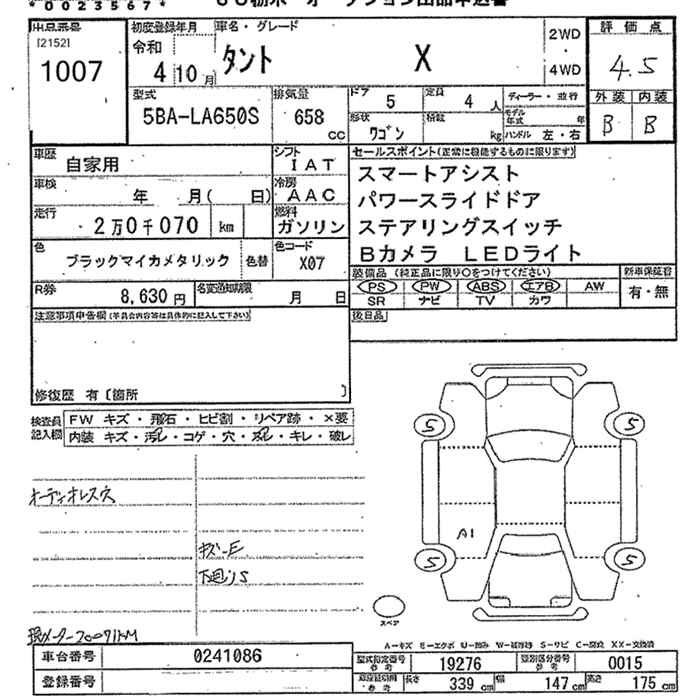 *0023567*
出品番号
[2152]
1007
初度登録年月
令和
4 10月
車名・グレード
タント X
2WD
・
4WD
評価点
4.5
型式
5BA-LA650S
排気量
658
cc
ドア
5
定員
4 人
形状
ワゴン
積載
kg
ディーラー・並行
モデル年式 年
ハンドル 左・右
外装 内装
B B
車歴
自家用
シフト
IAT
車検
年 月( 日)
冷房
AAC
走行
2万0千070 km
燃料
ガソリン
色
ブラックマイカメタリック
色替
色コード
X07
R券
8,630円
名変通知期限
月 日
セールスポイント(正常に機能するものに限ります)
スマートアシスト
パワースライドドア
ステアリングスイッチ
Bカメラ LEDライト
装備品 (純正品に限り○をつけてください)
PS PW ABS エアB AW
SR ナビ TV カワ
新車保証書
有・無
後日品
注意事項申告欄(不具合内容等は具体的に記入して下さい)
修復歴 有〔箇所 〕
検査員記入欄
FW キズ・飛石・ヒビ割・リペア跡・×要
内装 キズ・汚レ・コゲ・穴・スレ・キレ・破レ
オーディオレス穴
キズ-E
下回りS
現メーター20071KM
5 5
A1
5 5
スペア
A-キズ E-エクボ U-凹み W-補修跡 S-サビ C-腐食 XX-交換済
車台番号
0241086
登録番号
型式指定番号 参考
19276
類別区分番号 参考
0015
長さ 339 cm
幅 147 cm
高さ 175 cm